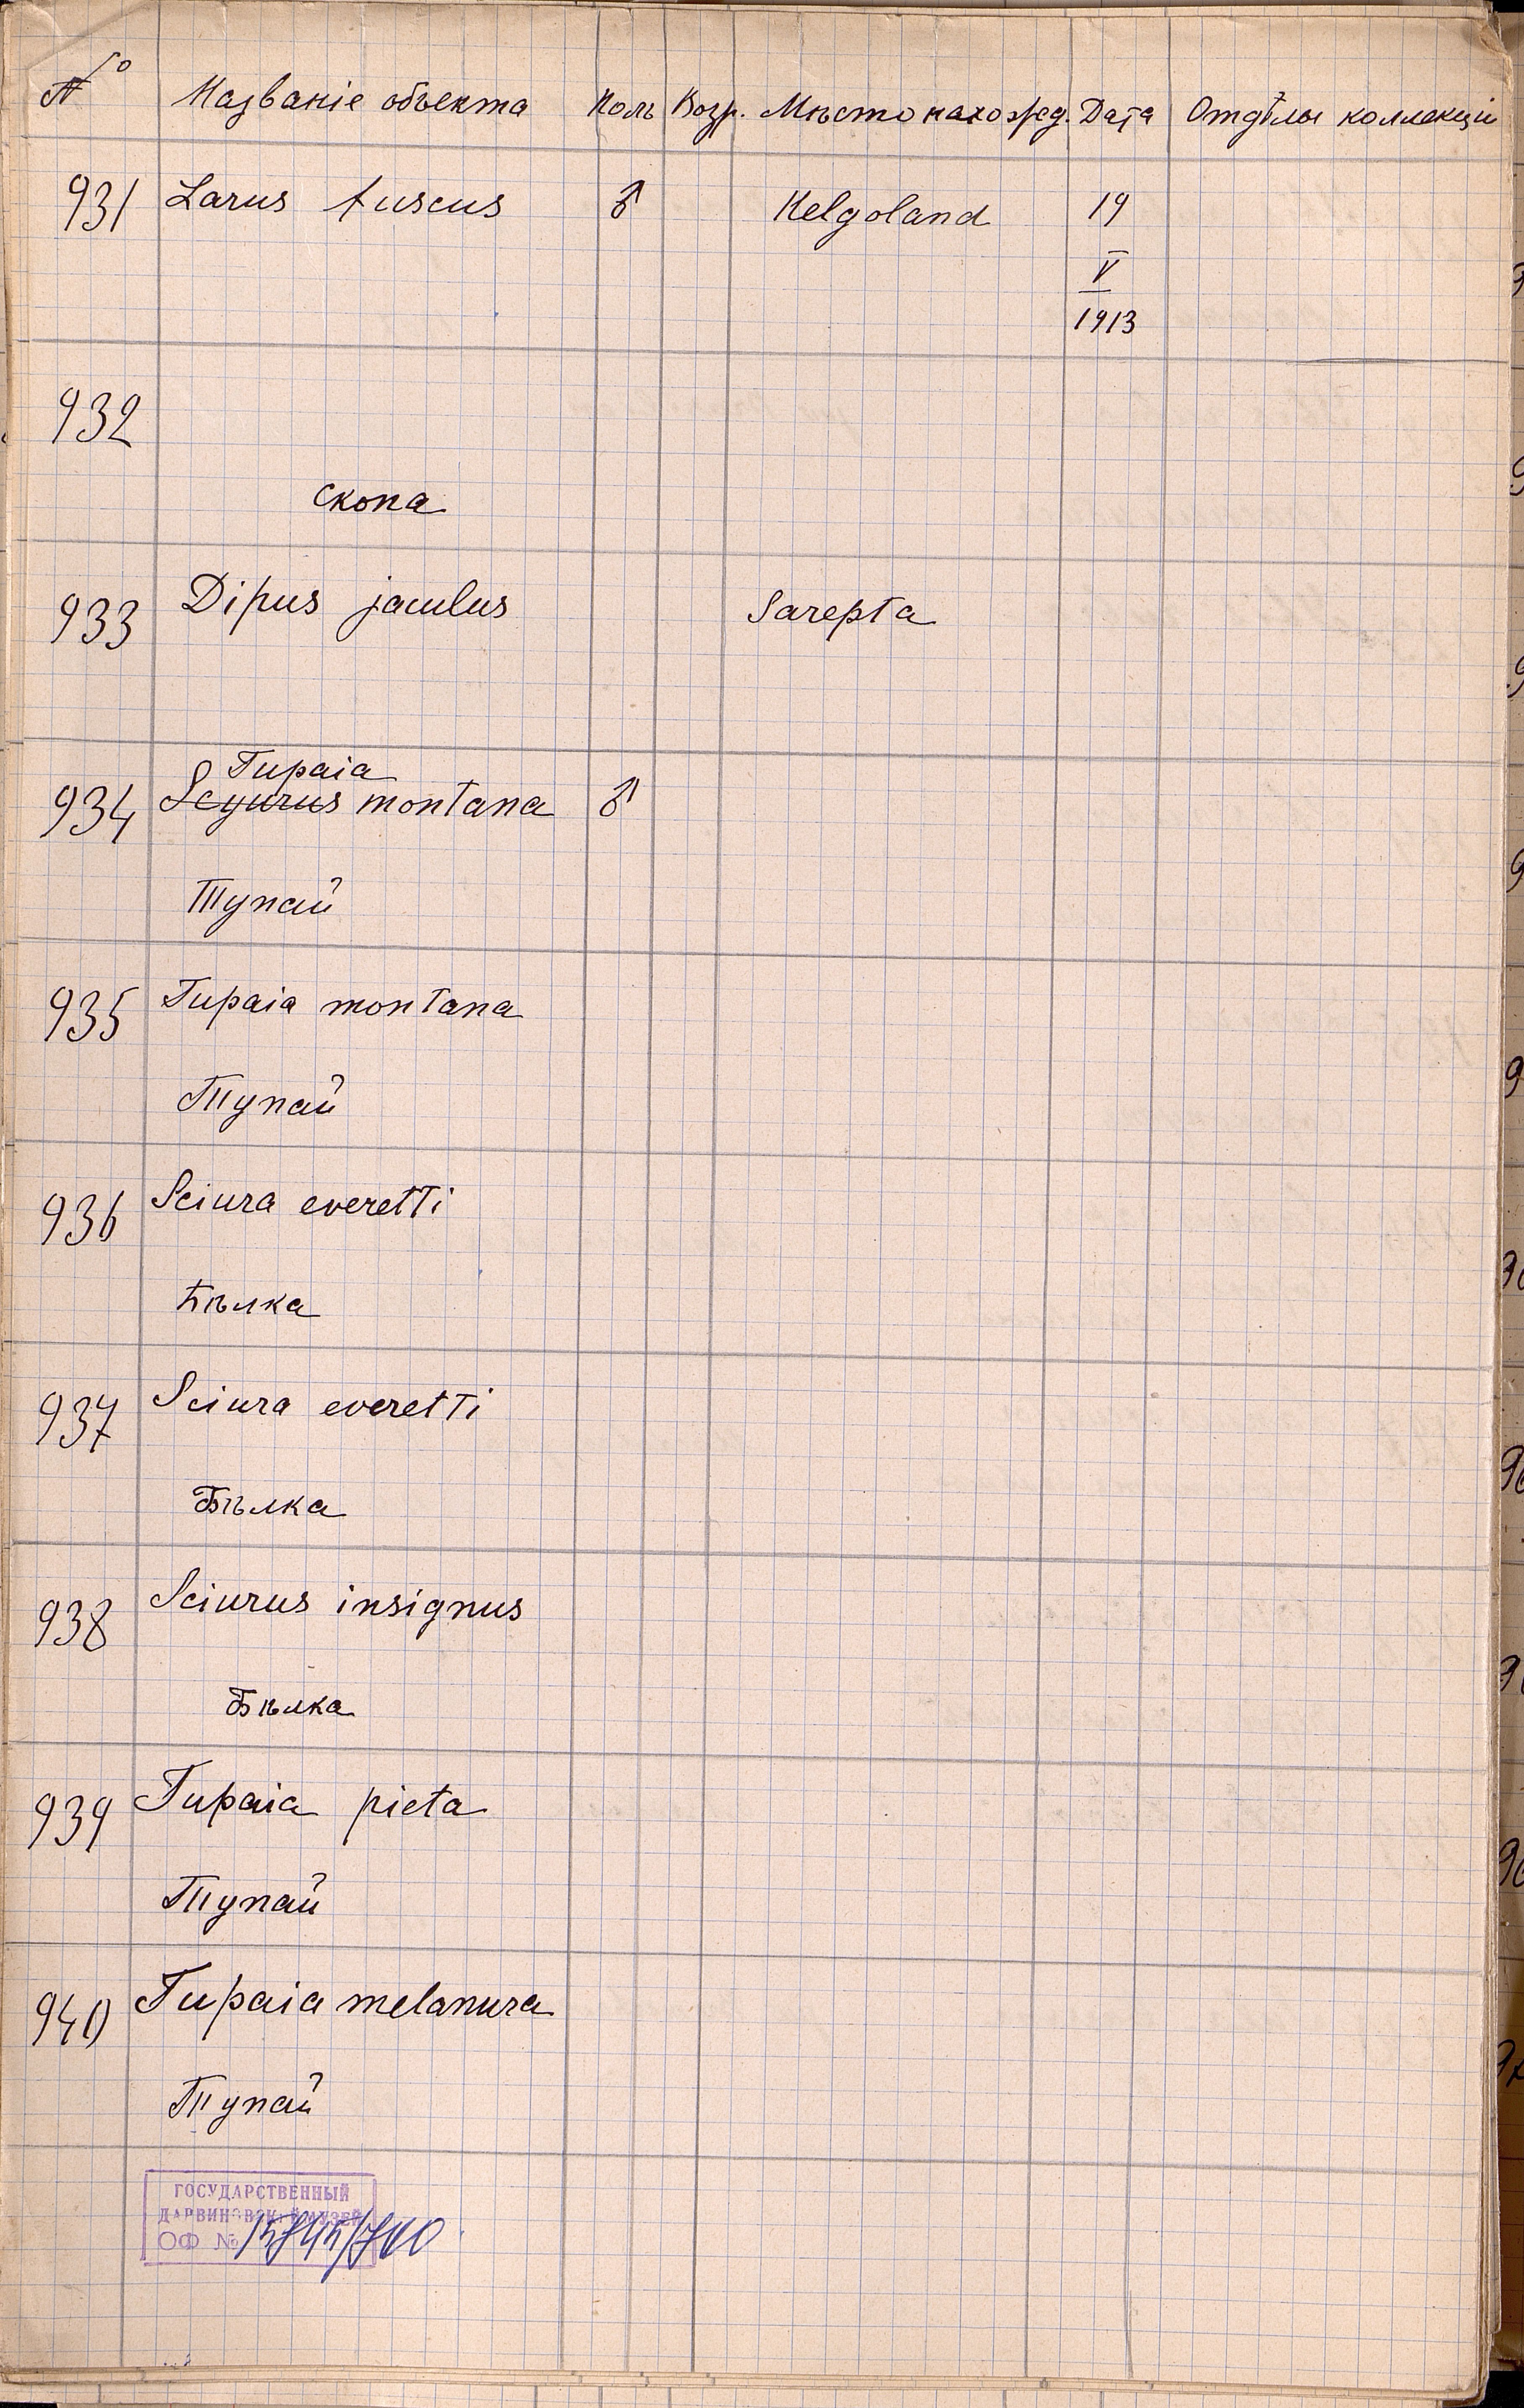 № Названіе объекта Полъ Возр. Мѣсто нахожд. Дата Отдѣлы коллекціи
931 Larus fuscus ♂ Helgoland 19
V
1913
932
скопа
933 Dipus jaculus Sarepta
Tupaia
934 Scyurus montana ♂
Тупай
935 Tupaia montana
Тупай
936 Sciura everetti
Бѣлка
937 Sciura everetti
Бѣлка
938 Sciurus insignus
Бѣлка
939 Tupaia picta
Тупай
940 Tupaia melanura
Тупай
ГОСУДАРСТВЕННЫЙ
ДАРВИНОВСКИЙ МУЗЕЙ
ОФ №